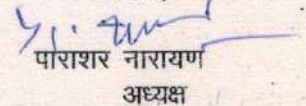 पाराशर नारायण
अध्यक्ष